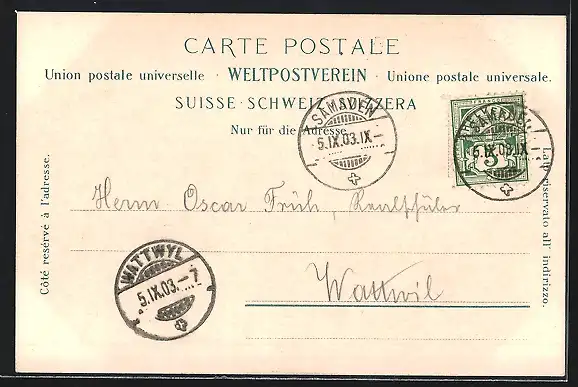 CARTE POSTALE
Union postale universelle · WELTPOSTVEREIN · Unione postale universale.
SUISSE · SCHWEIZ · SVIZZERA
Nur für die Adresse
SAMADEN
5.IX.03.IX-
SAMADEN
5.IX.03.IX
5
Côté reservé à l'adresse.
Lato riservato all' indirizzo.
Herrn Oscar Früh, Realschüler
Wattwil
WATTWYL
5.IX.03.-7